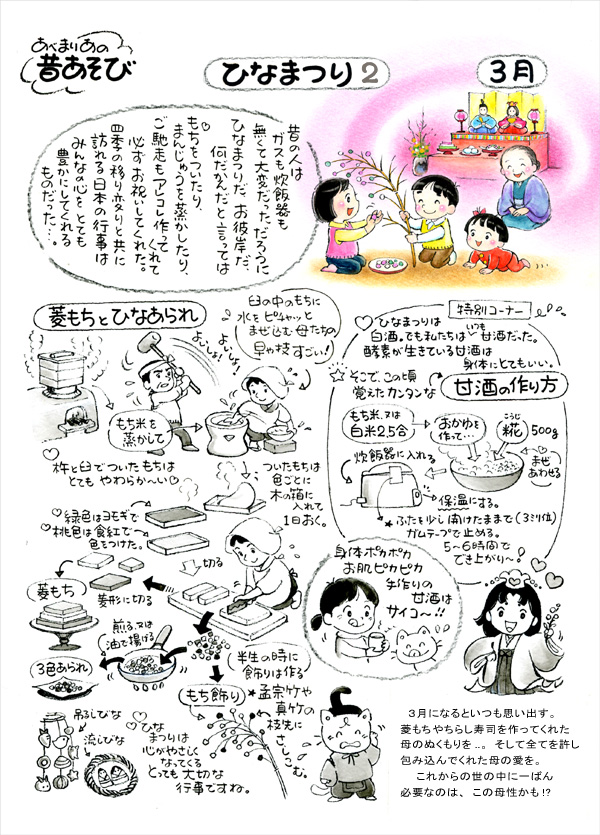 あべまりあの
昔あそび
ひなまつり2
3月
昔の人は
ガスも炊飯器も
無くて大変だっただろうに
ひなまつりだ、お彼岸だ、
何だかんだと言っては
もちをついたり、
まんじゅうを蒸かしたり、
ご馳走もアレコレ作ってくれて
必ずお祝いしてくれた。
四季の移り変りと共に
訪れる日本の行事は
みんなの心をとても
豊かにしてくれる
ものだった…。
菱もちとひなあられ
臼の中のもちに
水をピチャッと
まぜ込む母たちの
早や技すごい!
よいしょ!
よいしょ!
もち米を
蒸かして
杵と臼でついたもちは
とてもやわらか〜い♡
ついたもちは
色ごとに
木の箱に
入れて
1日おく。
緑色はヨモギで
桃色は食紅で
色をつけた。
切る
菱もち
菱形に切る
煎る、又は
油で揚げる
3色あられ
半生の時に
飾りは作る
もち飾り
*孟宗竹や
真竹の
枝先に
さしこむ。
吊しびな
流しびな
♡ひな
まつりは
心がやさしく
なってくる
とっても大切な
行事ですね。
特別コーナー
♡ひなまつりは
白酒。でも私たちはいつも甘酒だった。
酵素が生きている甘酒は
身体にとてもいい。
☆そこで、この頃
覚えたカンタンな
甘酒の作り方
もち米、又は
白米2,5合
おかゆを
作って…
糀 こうじ
500g
まぜ
あわせる
炊飯器に入れる
保温にする。
*ふたを少し開けたままで(3ミリ位)
ガムテープで止める。
5〜6時間で
でき上がり〜!
身体ポカポカ
お肌ピカピカ
手作りの
甘酒は
サイコ〜!!
3月になるといつも思い出す。
菱もちやちらし寿司を作ってくれた
母のぬくもりを‥。そして全てを許し
包み込んでくれた母の愛を。
これからの世の中に一ばん
必要なのは、この母性かも!?